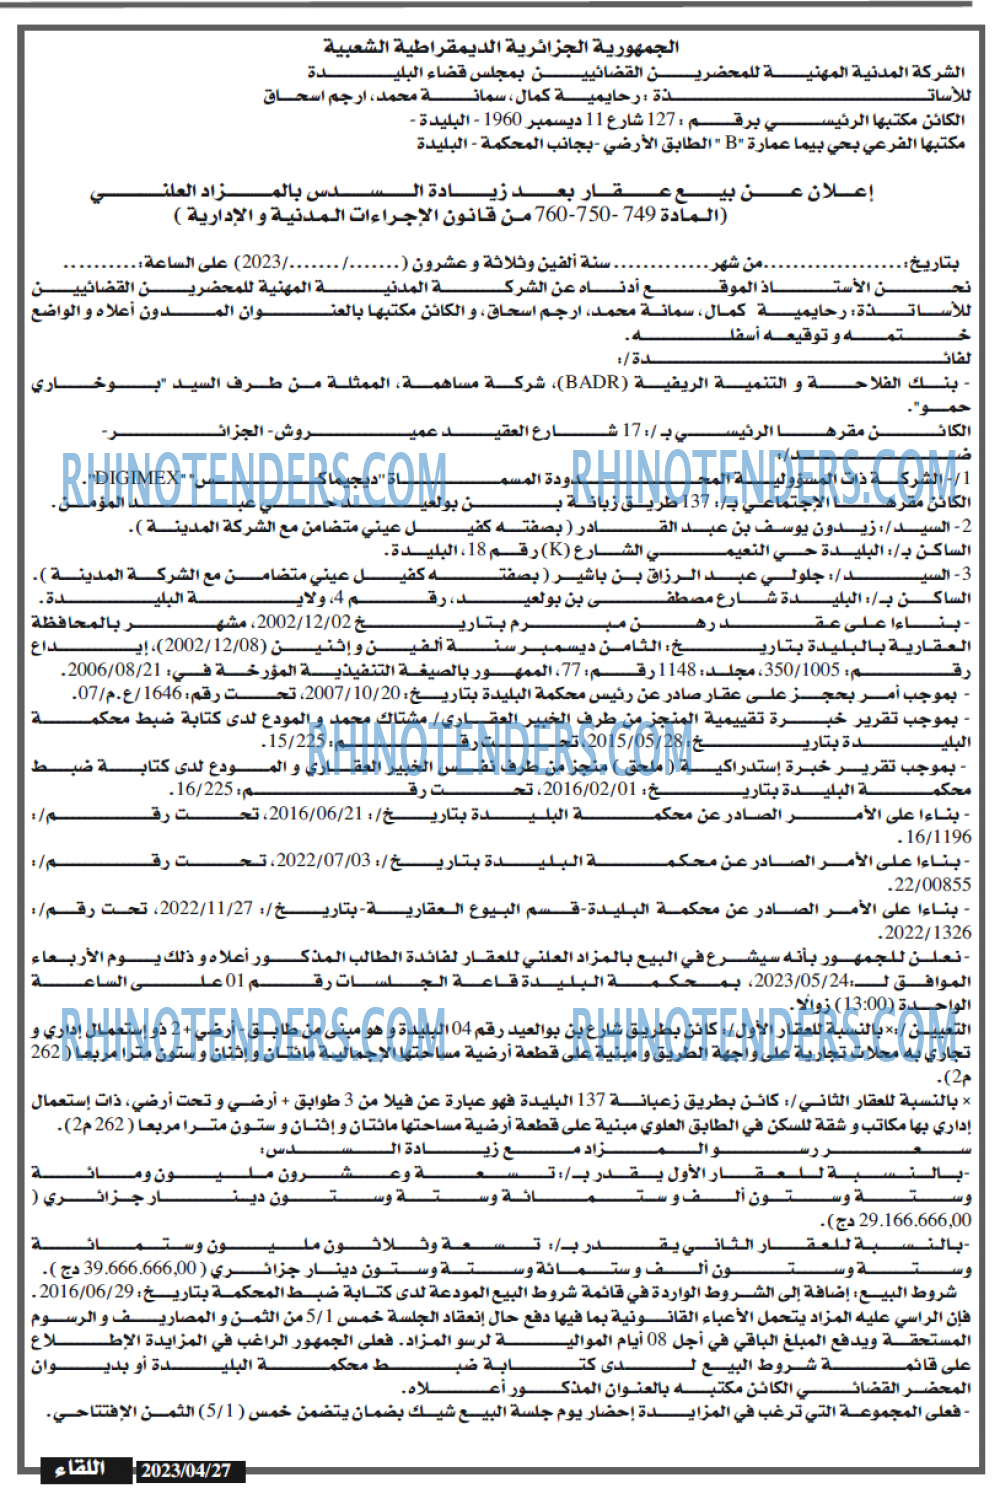 الجمهورية الجزائرية الديمقراطية الشعبية
الشركة المدنية المهنية للمحضرين القضائيين بمجلس قضاء البليدة
للأساتذة : رحايمية كمال، سمانة محمد، ارجم اسحاق
الكائن مكتبها الرئيسي برقم : 127 شارع 11 ديسمبر 1960 - البليدة -
مكتبها الفرعي بحي بيما عمارة "B" الطابق الأرضي -بجانب المحكمة - البليدة
إعلان عن بيع عقار بعد زيادة السدس بالمزاد العلني
(المادة 749 -750-760 من قانون الإجراءات المدنية و الإدارية )
بتاريخ:...................من شهر............. سنة ألفين وثلاثة و عشرون (......./......./2023) على الساعة:............
نحن الأستاذ الموقع أدناه عن الشركة المدنية المهنية للمحضرين القضائيين
للأساتذة: رحايمية كمال، سمانة محمد، ارجم اسحاق، و الكائن مكتبها بالعنوان المدون أعلاه و الواضع
ختمه و توقيعه أسفله.
لفائدة/:
- بنك الفلاحة و التنمية الريفية (BADR)، شركة مساهمة، الممثلة من طرف السيد "بوخاري
حمو".
الكائن مقرها الرئيسي بـ/: 17 شارع العقيد عميروش- الجزائر-
ضد/:
1/- الشركة ذات المسؤولية المحدودة المسماة "ديجيماكس" "DIGIMEX".
الكائن مقرها الإجتماعي بـ/: 137 طريق زبانة بن بولعيد حي عبد المؤمن.
2- السيد/: زيدون يوسف بن عبد القادر ( بصفته كفيل عيني متضامن مع الشركة المدينة ).
الساكن بـ/: البليدة حي النعيمي الشارع (K) رقم 18، البليدة.
3- السيد/: جلولي عبد الرزاق بن باشير ( بصفته كفيل عيني متضامن مع الشركة المدينة ).
الساكن بـ/: البليدة شارع مصطفى بن بولعيد، رقم 4، ولاية البليدة.
- بناءا على عقد رهن مبرم بتاريخ 2002/12/02، مشهر بالمحافظة
العقارية بالبليدة بتاريخ: الثامن ديسمبر سنة ألفين و إثنين (2002/12/08)، إيداع
رقم: 350/1005، مجلد: 1148 رقم: 77، الممهور بالصيغة التنفيذية المؤرخة في: 2006/08/21.
- بموجب أمر بحجز على عقار صادر عن رئيس محكمة البليدة بتاريخ: 2007/10/20، تحت رقم: 1646/ع.م/07.
- بموجب تقرير خبرة تقييمية المنجز من طرف الخبير العقاري/ مشتاك محمد و المودع لدى كتابة ضبط محكمة
البليدة بتاريخ: 2015/05/28، تحت رقم: 15/225.
- بموجب تقرير خبرة إستدراكية ( ملحق ) منجز من طرف نفس الخبير العقاري و المودع لدى كتابة ضبط
محكمة البليدة بتاريخ: 2016/02/01، تحت رقم: 16/225.
- بناءا على الأمر الصادر عن محكمة البليدة بتاريخ/: 2016/06/21، تحت رقم/:
16/1196.
- بناءا على الأمر الصادر عن محكمة البليدة بتاريخ/: 2022/07/03، تحت رقم/:
22/00855.
- بناءا على الأمر الصادر عن محكمة البليدة-قسم البيوع العقارية-بتاريخ/: 2022/11/27، تحت رقم/:
2022/1326.
- نعلن للجمهور بأنه سيشرع في البيع بالمزاد العلني للعقار لفائدة الطالب المذكور أعلاه و ذلك يوم الأربعاء
الموافق لـ:2023/05/24، بمحكمة البليدة قاعة الجلسات رقم 01 على الساعة
الواحدة (13:00) زوالا.
التعيين /:× بالنسبة للعقار الأول/: كائن بطريق شارع بن بوالعيد رقم 04 البليدة و هو مبنى من طابق- أرضي+ 2 ذو إستعمال إداري و
تجاري به محلات تجارية على واجهة الطريق و مبنية على قطعة أرضية مساحتها الإجمالية مائتان و إثنان و ستون مترا مربعا ( 262
م2).
× بالنسبة للعقار الثاني/: كائن بطريق زعبانة 137 البليدة فهو عبارة عن فيلا من 3 طوابق + أرضي و تحت أرضي، ذات إستعمال
إداري بها مكاتب و شقة للسكن في الطابق العلوي مبنية على قطعة أرضية مساحتها مائتان و إثنان و ستون مترا مربعا ( 262 م2).
سعر رسو المزاد مع زيادة السدس:
-بالنسبة للعقار الأول يقدر بـ/: تسعة وعشرون مليون ومائة
وستة وستون ألف و ستمائة وستة وستون دينار جزائري (
29.166.666,00 دج).
-بالنسبة للعقار الثاني يقدر بـ/: تسعة وثلاثون مليون وستمائة
وستة وستون ألف و ستمائة وستة وستون دينار جزائري ( 39.666.666,00 دج ).
شروط البيع: إضافة إلى الشروط الواردة في قائمة شروط البيع المودعة لدى كتابة ضبط المحكمة بتاريخ: 2016/06/29.
فإن الراسي عليه المزاد يتحمل الأعباء القانونية بما فيها دفع حال إنعقاد الجلسة خمس 5/1 من الثمن و المصاريف و الرسوم
المستحقة ويدفع المبلغ الباقي في أجل 08 أيام الموالية لرسو المزاد. فعلى الجمهور الراغب في المزايدة الإطلاع
على قائمة شروط البيع لدى كتابة ضبط محكمة البليدة أو بديوان
المحضر القضائي الكائن مكتبه بالعنوان المذكور أعلاه.
- فعلى المجموعة التي ترغب في المزايدة إحضار يوم جلسة البيع شيك بضمان يتضمن خمس ( 5/1) الثمن الإفتتاحي.
اللقاء 2023/04/27
RHINOTENDERS.COM
RHINOTENDERS.COM
RHINOTENDERS.COM
RHINOTENDERS.COM
RHINOTENDERS.COM